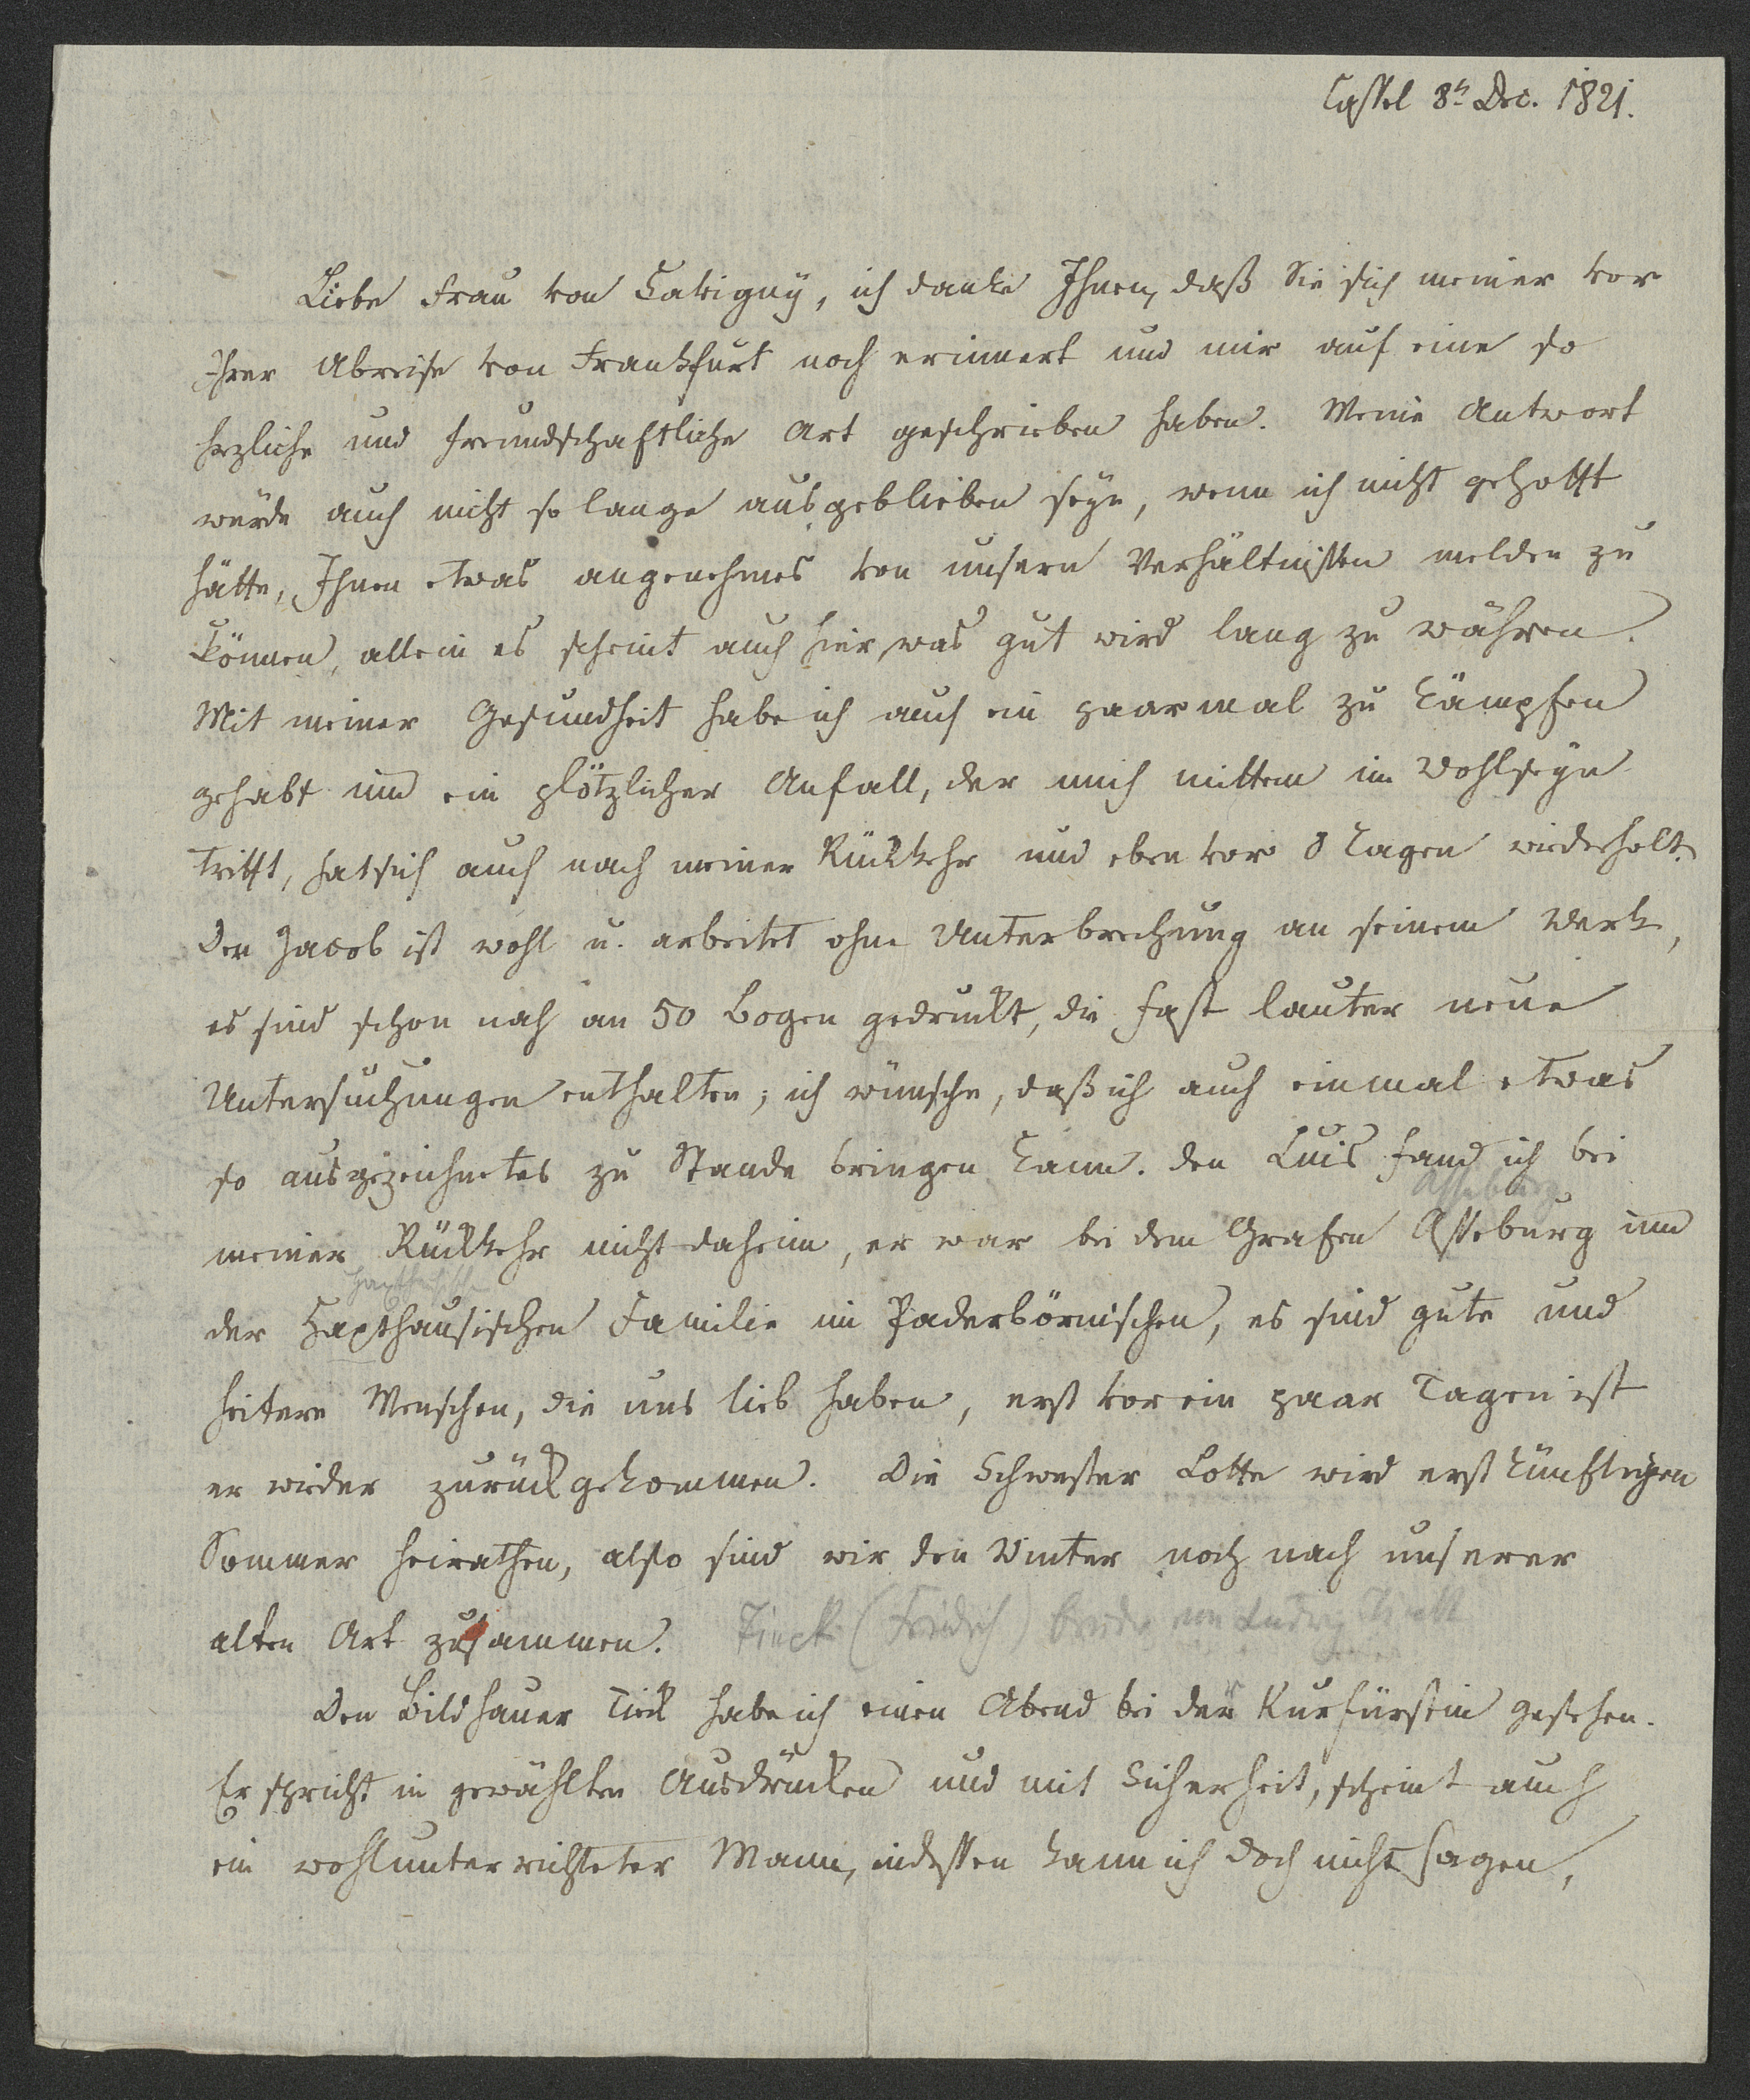 Cassel 8t Dec. 1821.
Liebe Frau von Savigny, ich danke Ihnen, daß Sie sich meiner vor
Ihrer Abreise von Frankfurt noch erinnert und mir auf eine so
herzliche und freundschaftliche Art geschrieben haben. Meine Antwort
würde auch nicht so lange ausgeblieben seyn, wenn ich nicht gehofft
hätte, Ihnen etwas angenehmes von unsern Verhältnissen melden zu
können, allein es scheint auch hier, was gut wird lang zu währen.
Mit meiner Gesundheit habe ich auch ein paarmal zu kämpfen
gehabt und ein plötzlicher Anfall, der mich mitten im Wohlseyn
trifft, hat sich auch nach meiner Rückkehr und eben vor 8 Tagen wiederholt.
Der Jacob ist wohl u. arbeitet ohne Unterbrechung an seinem Werk,
es sind schon nah an 50 Bogen gedruckt, die fast lauter neue
Untersuchungen enthalten; ich wünsche, daß ich auch einmal etwas
so ausgezeichnetes zu Stande bringen kann. den Luis fand ich bei
Asseburg
meiner Rückkehr nicht daheim, er war bei dem Grafen Asseburg und
der Haxthausischen Familie im Paderbörnischen, es sind gute und
heitere Menschen, die uns lieb haben, erst vor ein paar Tagen ist
er wieder zurückgekommen. Die Schwester Lotte wird erst künftigen
Sommer heirathen, also sind wir den Winter noch nach unserer
alten Art zusammen. Tieck (Friedrich) Bruder von Ludwig Tieck
Den Bildhauer Tieck habe ich einen Abend bei der Kurfürstin gesehen.
Er spricht in gewählten Ausdrücken und mit Sicherheit, scheint auch
ein wohlunterrichteter Mann, indessen kann ich doch nicht sagen,